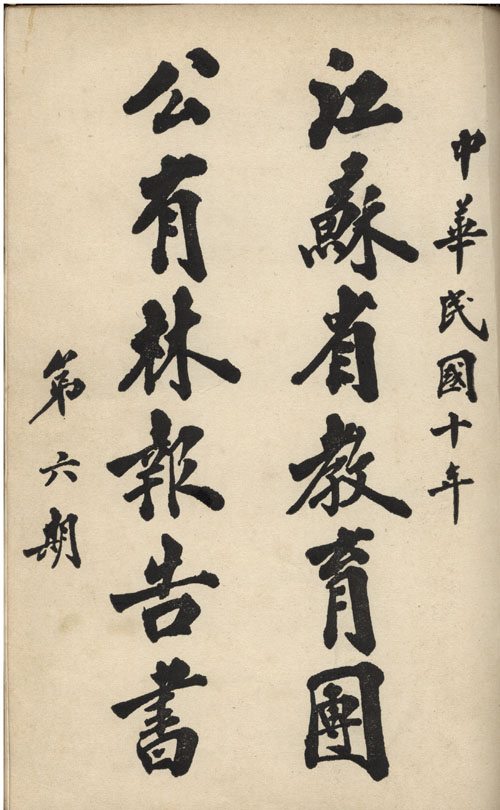 中華民國十年
江蘇省教育團
公有林報告書
第六期